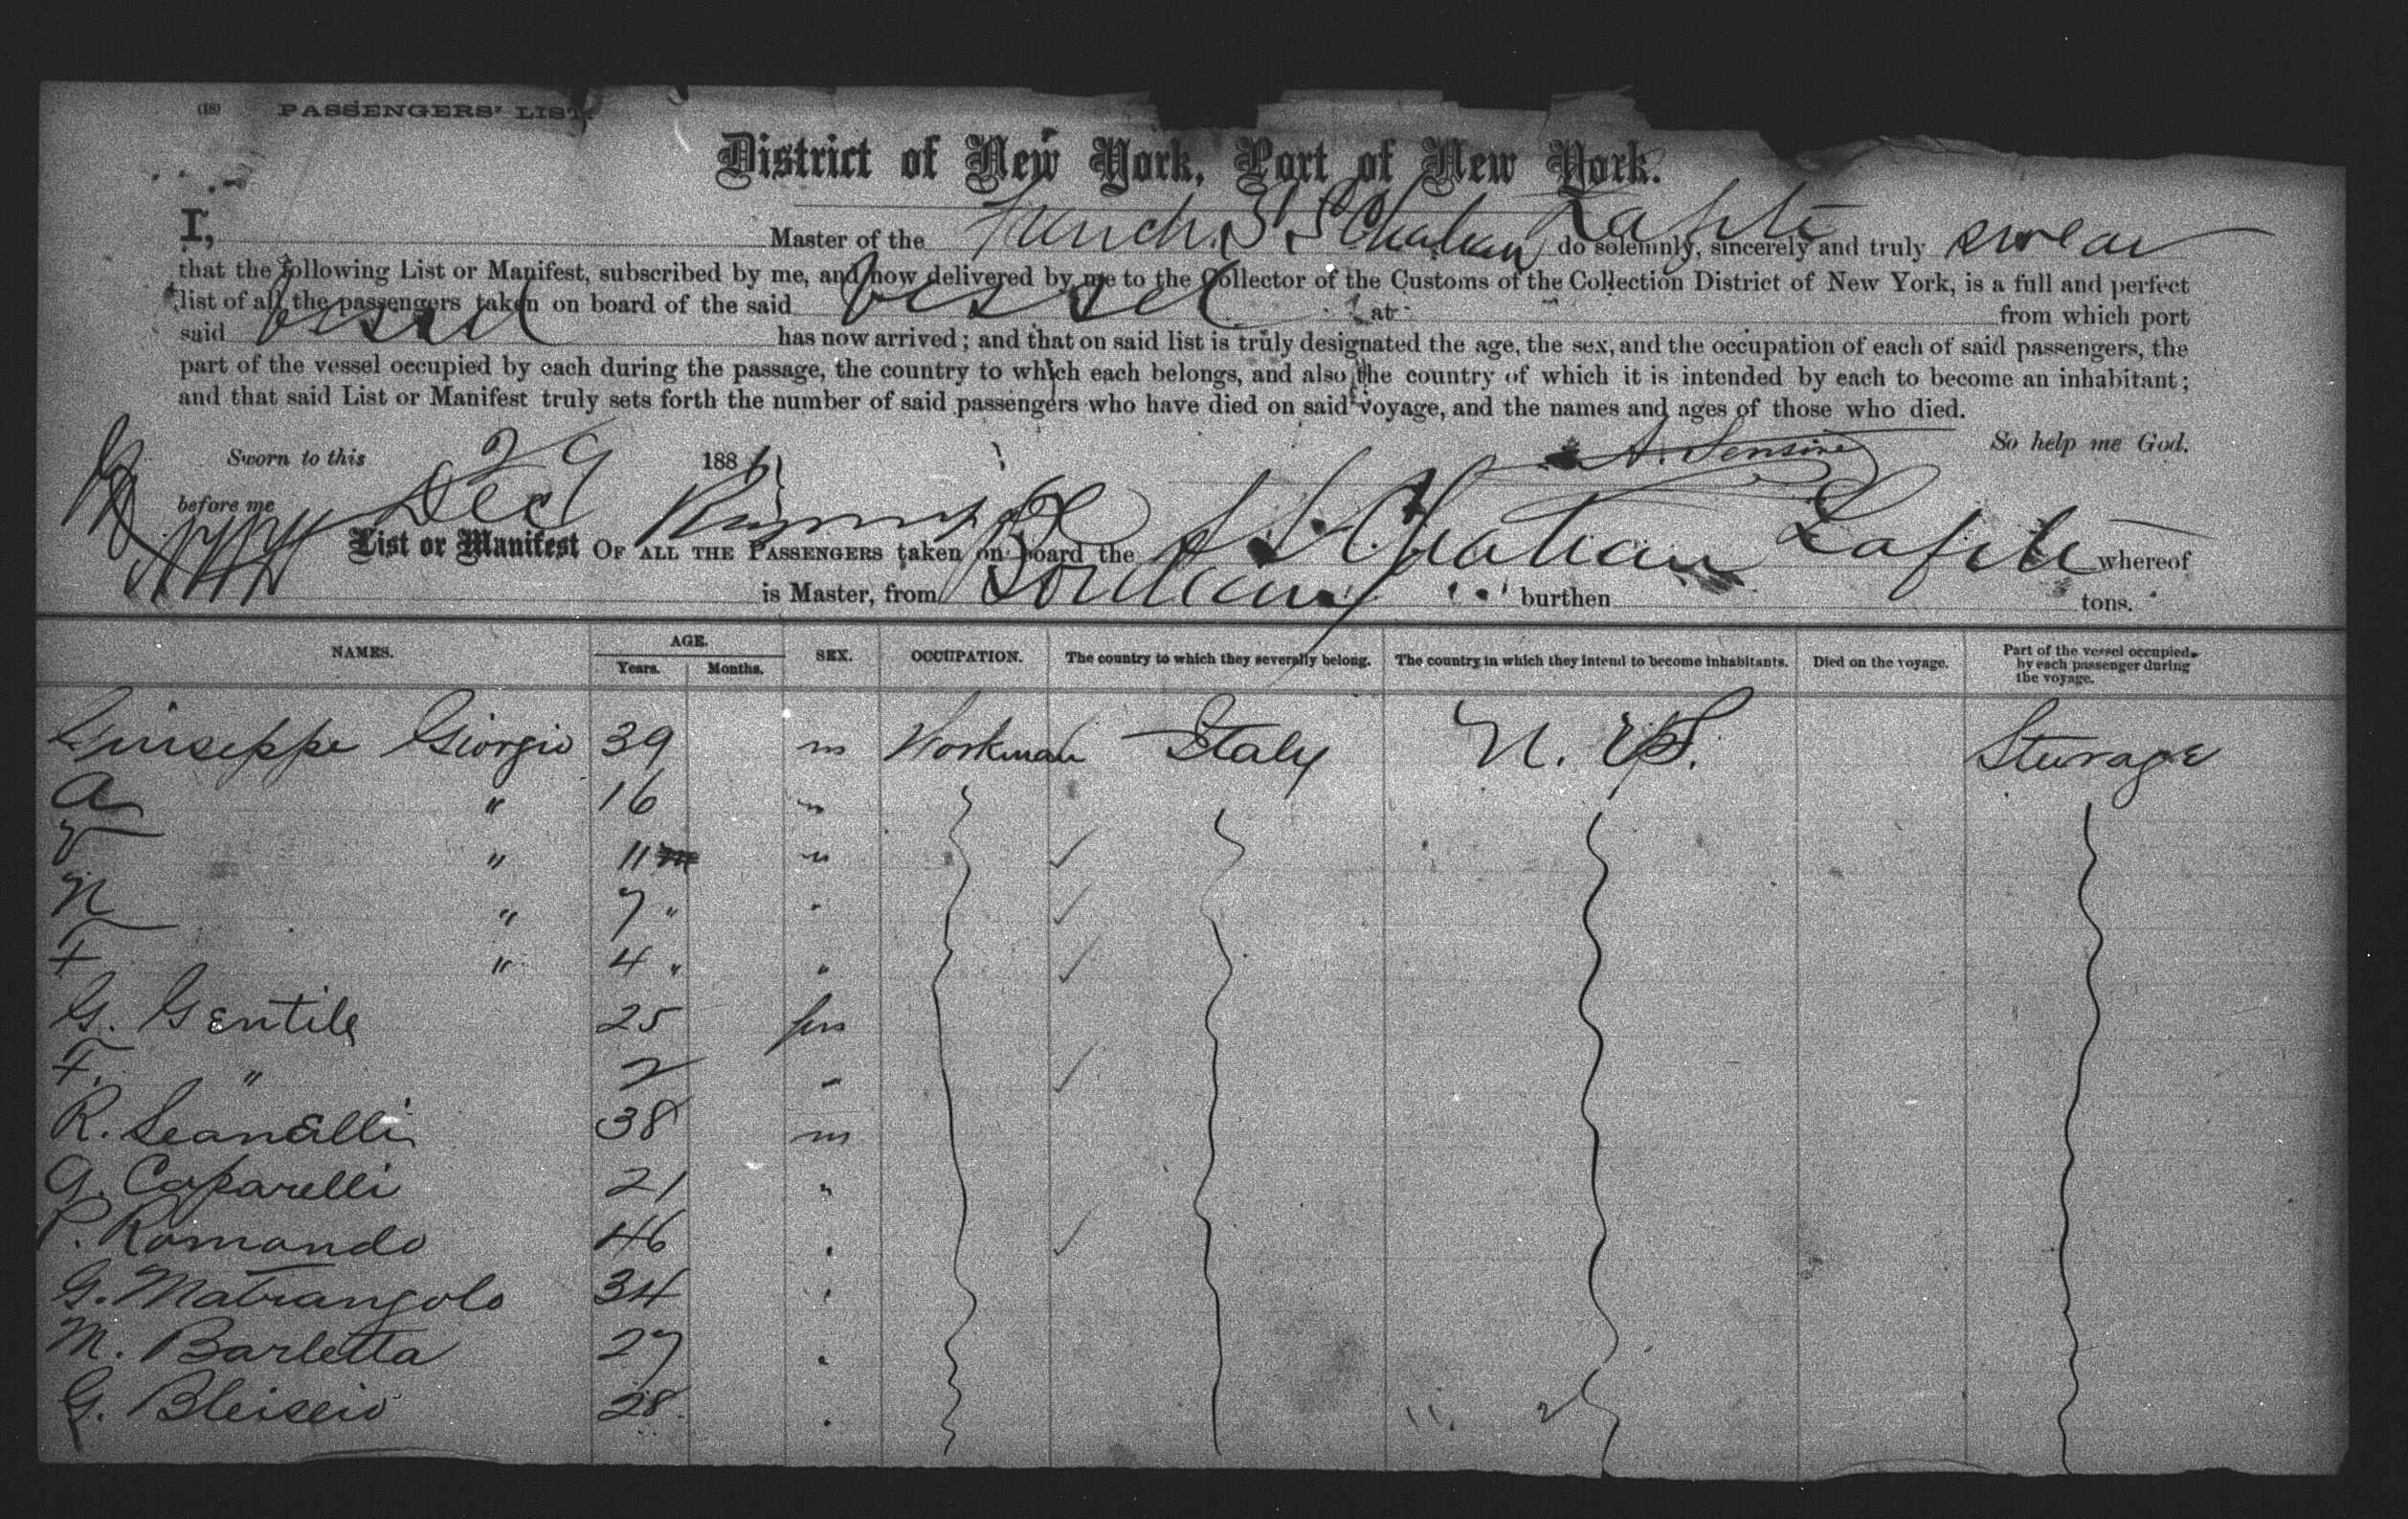 (18) PASSENGERS' LIST.
District of New York, Port of New York.
I, Master of the French S S Chateau Lafite do solemnly, sincerely and truly swear
that the following List or Manifest, subscribed by me, and now delivered by me to the Collector of the Customs of the Collection District of New York, is a full and perfect
list of all the passengers taken on board of the said vessel at from which port
said vessel has now arrived; and that on said list is truly designated the age, the sex, and the occupation of each of said passengers, the
part of the vessel occupied by each during the passage, the country to which each belongs, and also the country of which it is intended by each to become an inhabitant;
and that said List or Manifest truly sets forth the number of said passengers who have died on said voyage, and the names and ages of those who died.
So help me God.
Sworn to this 29 188 A. Sensine
before me Dec
List or Manifest OF ALL THE PASSENGERS taken on board the S S. Chateau Lafite whereof
is Master, from Bordeaux burthen tons.
NAMES. AGE. Years. Months. SEX. OCCUPATION. The country to which they severally belong. The country in which they intend to become inhabitants. Died on the voyage. Part of the vessel occupied by each passenger during the voyage.
Giuseppe Giorgio 39 m Workman Italy U. S. Sturage
A " 16 m
" 11 "
N " 7 " "
F " 4 " "
G. Gentile 25 fm
F. " 2 "
R. Seanelli 38 m
G. Caparelli 21 "
P. Romando 46 "
G. Matrangolo 34 "
M. Barletta 27 "
G. Bleiseio 28 "